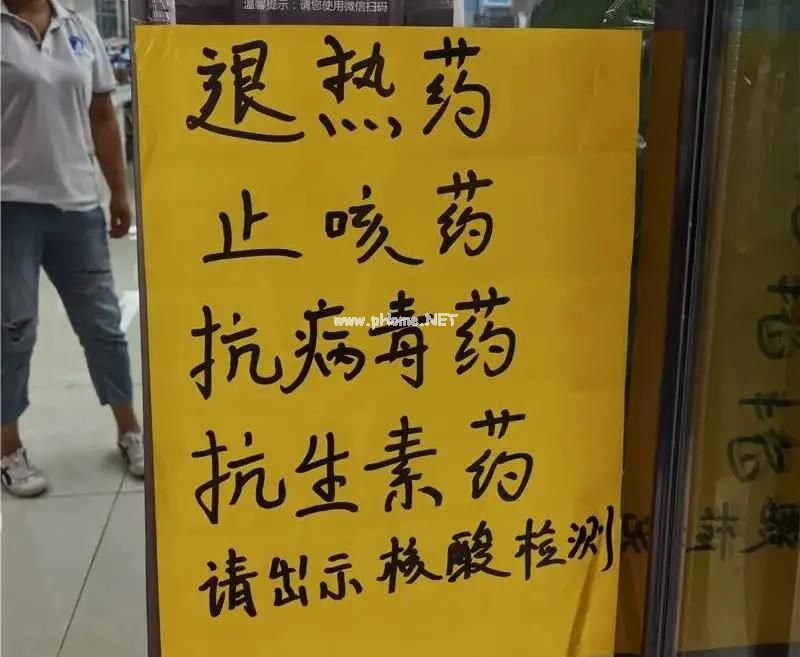 温馨提示：请您使用微信扫码
退热药
止咳药
抗病毒药
www.pHome.NET
抗生素药
请出示核酸检测